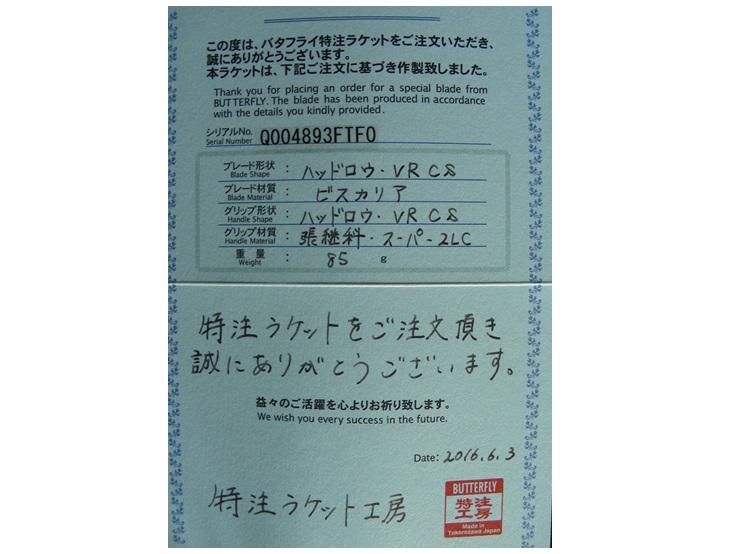 この度は、バタフライ特注ラケットをご注文いただき、
誠にありがとうございます。
本ラケットは、下記ご注文に基づき作製致しました。
Thank you for placing an order for a special blade from
BUTTERFLY. The blade has been produced in accordance
with the details you kindly provided.
シリアルNo. Serial Number Q004893FTF0
ブレード形状 Blade Shape : ハッドロウ・VR CS
ブレード材質 Blade Material : ビスカリア
グリップ形状 Handle Shape : ハッドロウ・VR CS
グリップ材質 Handle Material : 張継科・スーパーZLC
重量 Weight : 85 g
特注ラケットをご注文頂き
誠にありがとうございます。
益々のご活躍を心よりお祈り致します。
We wish you every success in the future.
Date: 2016.6.3
特注ラケット工房
BUTTERFLY
特注
工房
Made in
Tokorozawa Japan